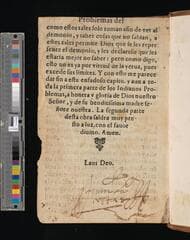 Problemas del
como estos tales solo toman esto de ver al
demonio, y saber cosas que no sabian, a
estos tales permite Dios que se les repre
sente el demonio, y les declare lo que les
estaria mejor no saber: pero como digo,
esto no es ya por virtud de la yerua, pues
excede sus limites. Y con esto me parece
dar fin a este enfadoso capitu. y aun a to-
da la primera parte de los Indianos Pro
blemas, a honra y gloria de Dios nuestro
Señor, y de su benditissima madre se-
ñora nuestra. La segunda parte
desta obra saldra muy pre
sto a luz, con el fauor
diuino. Amen.
Laus Deo.